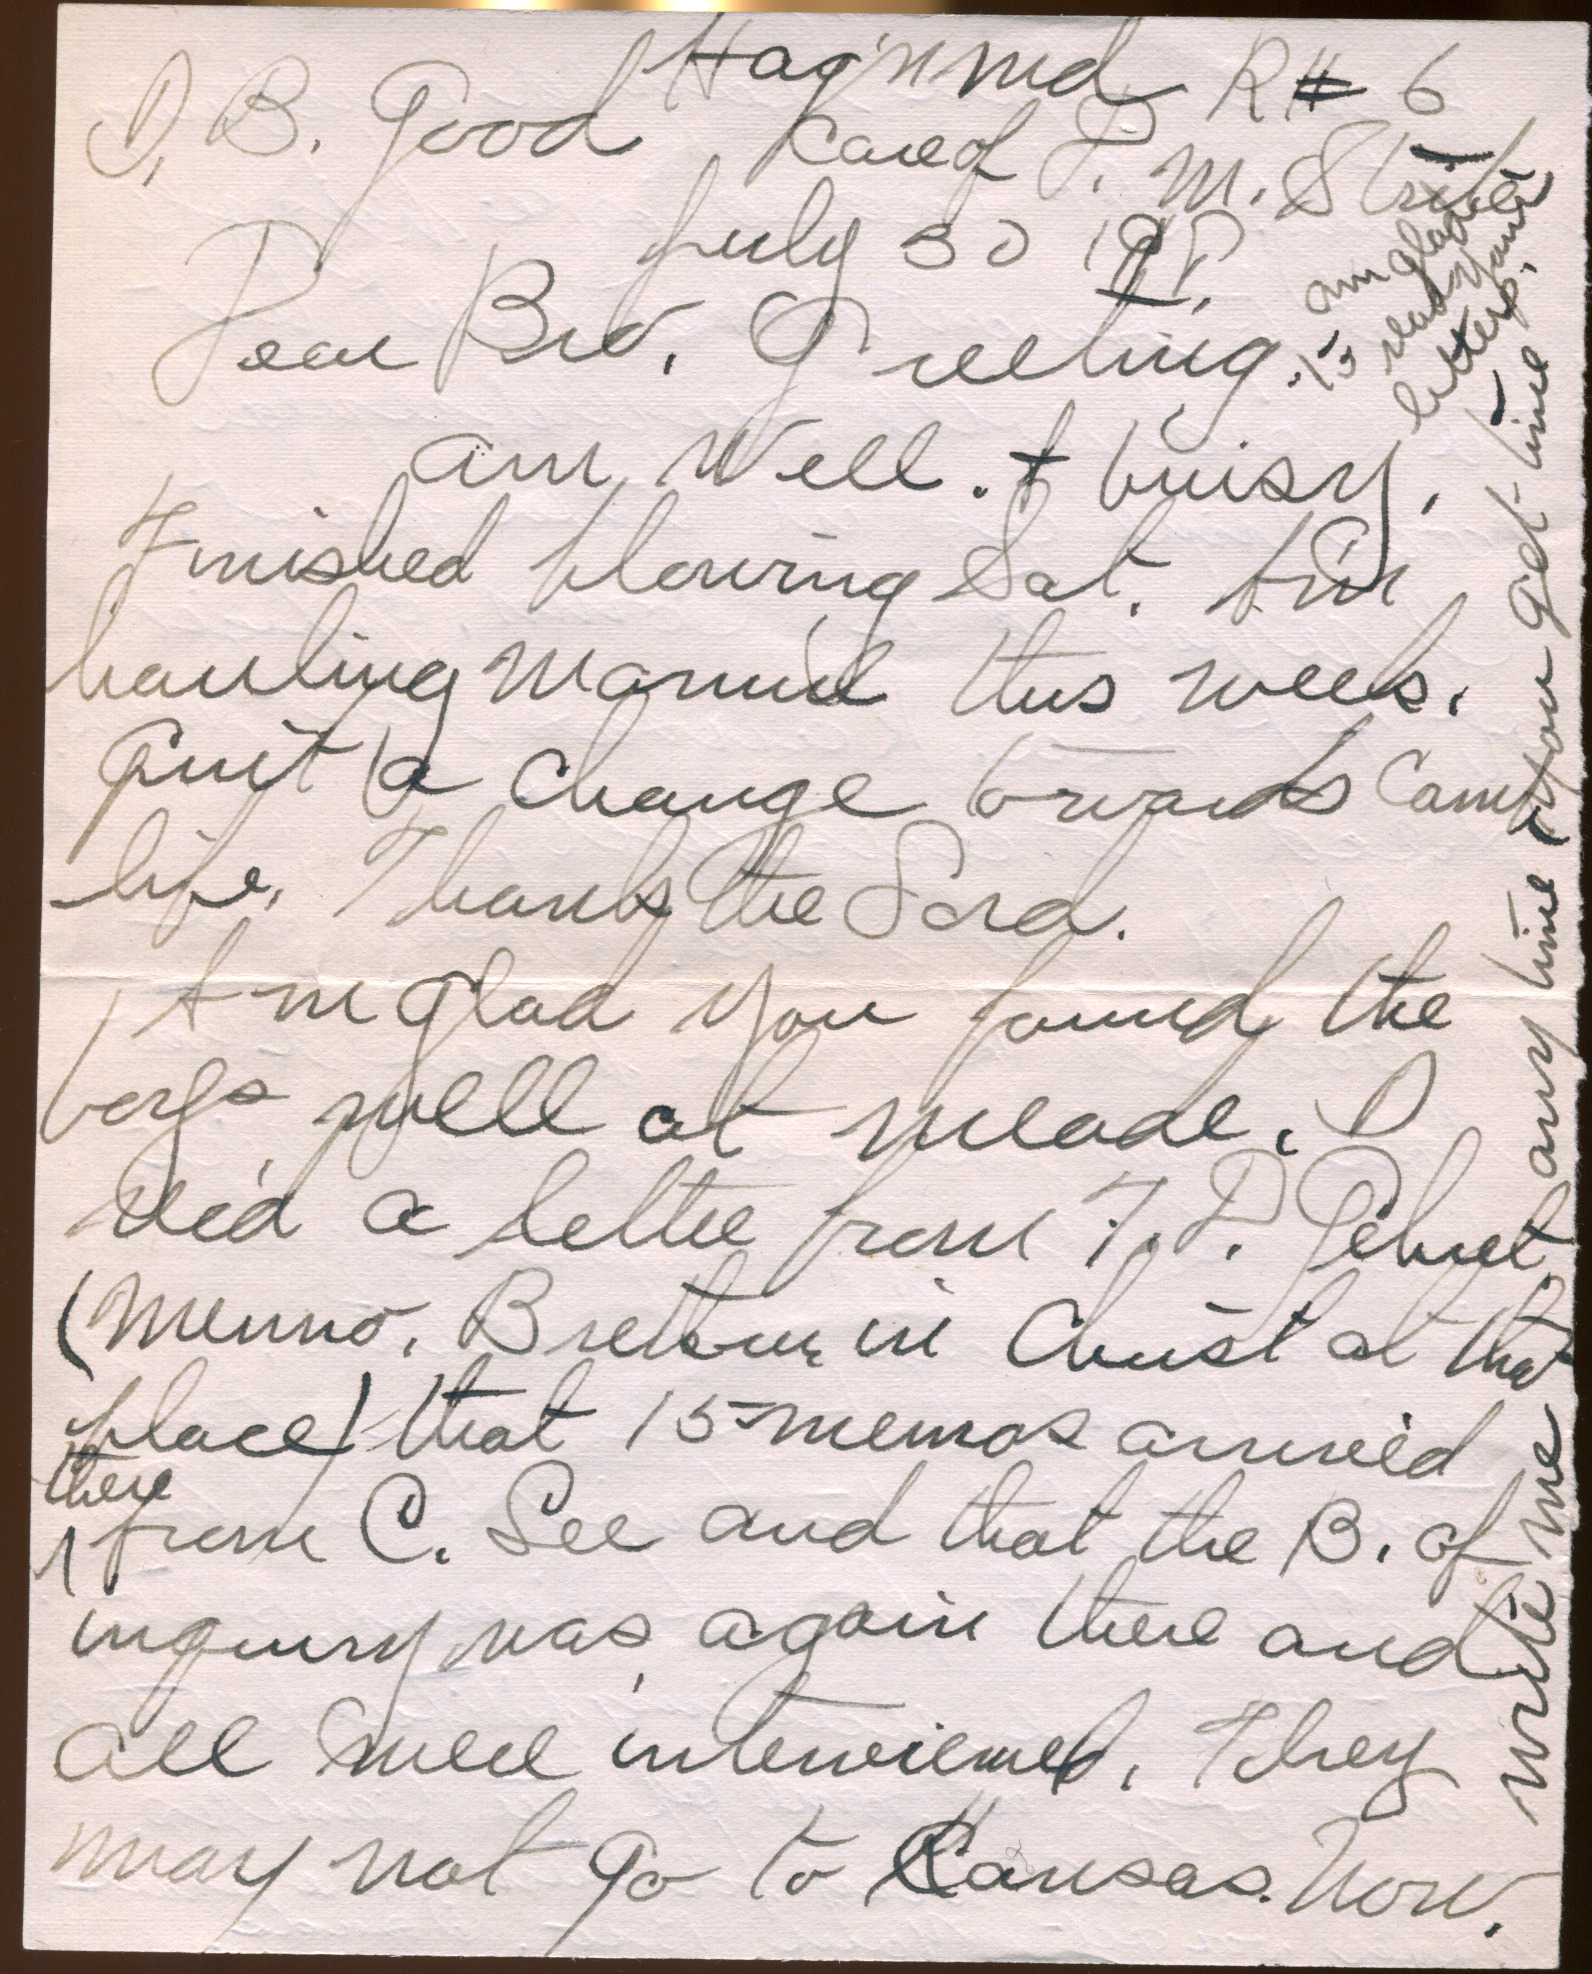 Hag'n Md R # 6
D. B. Good Care of P. M. Strite
July 30 1918.
Dear Bro. Greeting.
am Well. & buisy.
Finished plowing Sat. Am
hauling Manure this week.
Quit a change towards Camp
life. Thanks the Lord.
Am glad you found the
boys well at Meade. I
rec'd a letter from T. D.
(Menno. Brethren in Christ at that
place) that 15 menos arrived
there
from C. Lee and that the B. of
inquiry was again there and
all were interviewed. They
may not go to Kansas. Now.
write me any time if you get time
am glad
to read your
letters.